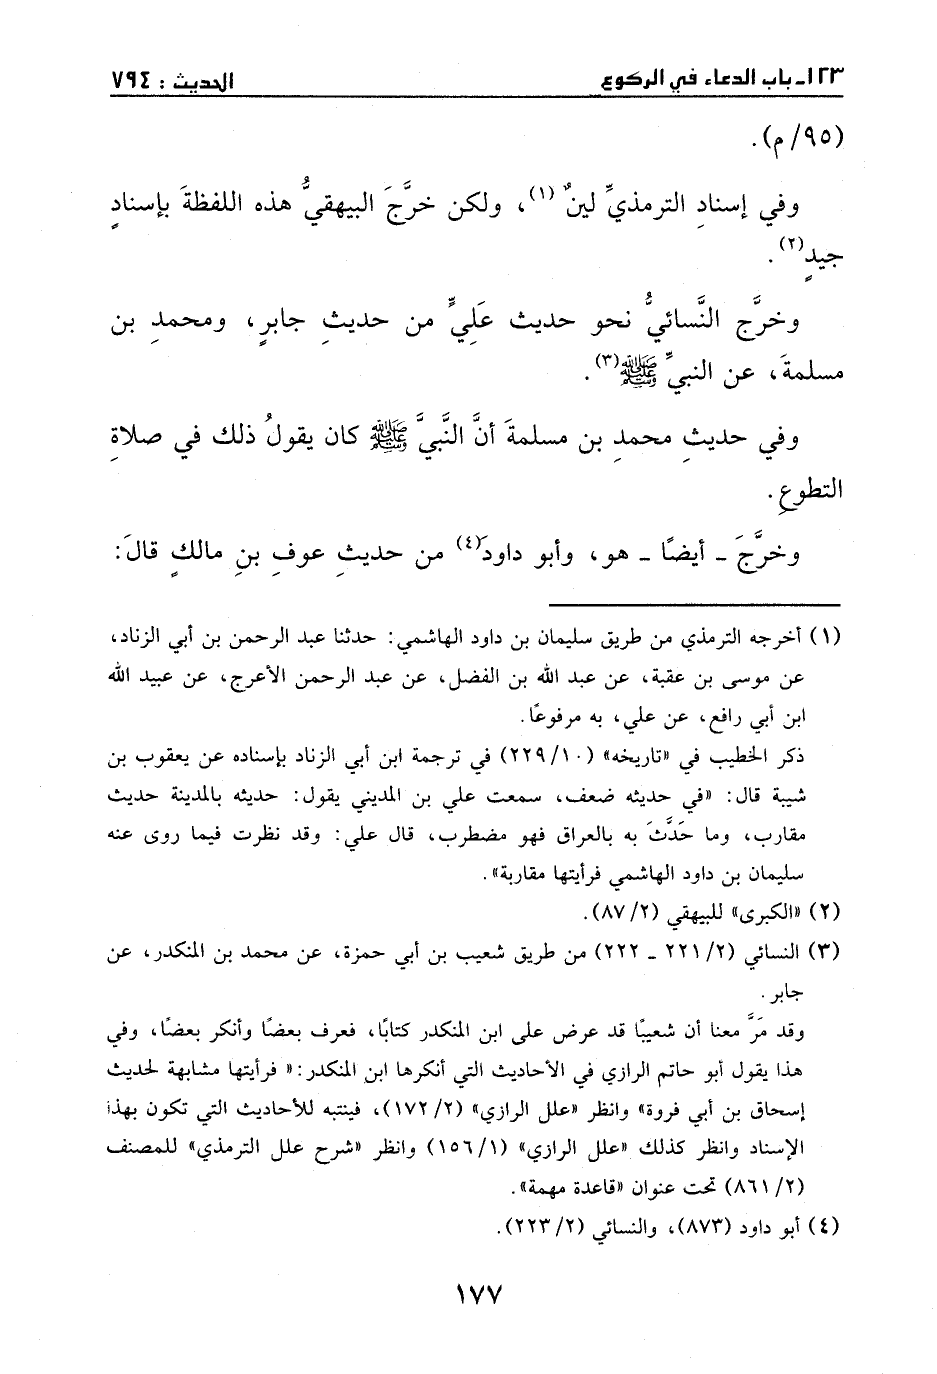 ١٢٣ـ باب الدعاء في الركوع الحديث : ٧٩٤
(٩٥/ م).
وفي إسنادِ الترمذيِّ لينٌ(١)، ولكن خرَّجَ البيهقيُّ هذه اللفظةَ بإسنادٍ
جيدٍ(٢).
وخرَّج النَّسائيُّ نحو حديث عَلِيٍّ من حديثِ جابرٍ، ومحمدِ بن
مسلمةَ، عن النبيِّ ﷺ(٣).
وفي حديثِ محمدِ بن مسلمةَ أنَّ النَّبيَّ ﷺ كان يقولُ ذلك في صلاةِ
التطوعِ.
وخرَّجَ ـ أيضًا ـ هو، وأبو داودَ(٤) من حديثِ عوفِ بنِ مالكٍ قالَ:
(١) أخرجه الترمذي من طريق سليمان بن داود الهاشمي: حدثنا عبد الرحمن بن أبي الزناد،
عن موسى بن عقبة، عن عبد الله بن الفضل، عن عبد الرحمن الأعرج، عن عبيد الله
ابن أبي رافع، عن علي، به مرفوعًا.
ذكر الخطيب في «تاريخه» (١٠/ ٢٢٩) في ترجمة ابن أبي الزناد بإسناده عن يعقوب بن
شيبة قال: «في حديثه ضعف، سمعت علي بن المديني يقول: حديثه بالمدينة حديث
مقارب، وما حَدَّثَ به بالعراق فهو مضطرب، قال علي: وقد نظرت فيما روى عنه
سليمان بن داود الهاشمي فرأيتها مقاربة».
(٢) «الكبرى» للبيهقي (٢/ ٨٧).
(٣) النسائي (٢/ ٢٢١ ـ ٢٢٢) من طريق شعيب بن أبي حمزة، عن محمد بن المنكدر، عن
جابر.
وقد مَرَّ معنا أن شعيبًا قد عرض على ابن المنكدر كتابًا، فعرف بعضًا وأنكر بعضًا، وفي
هذا يقول أبو حاتم الرازي في الأحاديث التي أنكرها ابن المنكدر:« فرأيتها مشابهة لحديث
إسحاق بن أبي فروة» وانظر «علل الرازي» (٢/ ١٧٢)، فينتبه للأحاديث التي تكون بهذا
الإسناد وانظر كذلك «علل الرازي» (١/ ١٥٦) وانظر «شرح علل الترمذي» للمصنف
(٢/ ٨٦١) تحت عنوان «قاعدة مهمة».
(٤) أبو داود (٨٧٣)، والنسائي (٢/ ٢٢٣).
١٧٧